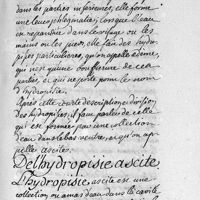 dans les parties inferieures, elle forme
une leucophlegmatie, lorsque l'eau
est repandue dans le visage ou les
mains ou les piez, elle fait des hydro
pisies particulieres, qu'on appelle œdeme,
qui n'est qu'une bouffissure de ces
parties, et qui ne porte pas le nom
d'hydropisie.
Apres cette courte description et division
des hydropisies, il faut parler de celle
qui est formée par une collection
d'eau dans le bas ventre, et qu'on ap
pelle ascite.
De l'hydropisie ascite
L'hydropisie, ascite est une
collection ou amas d'eau dans la cavité